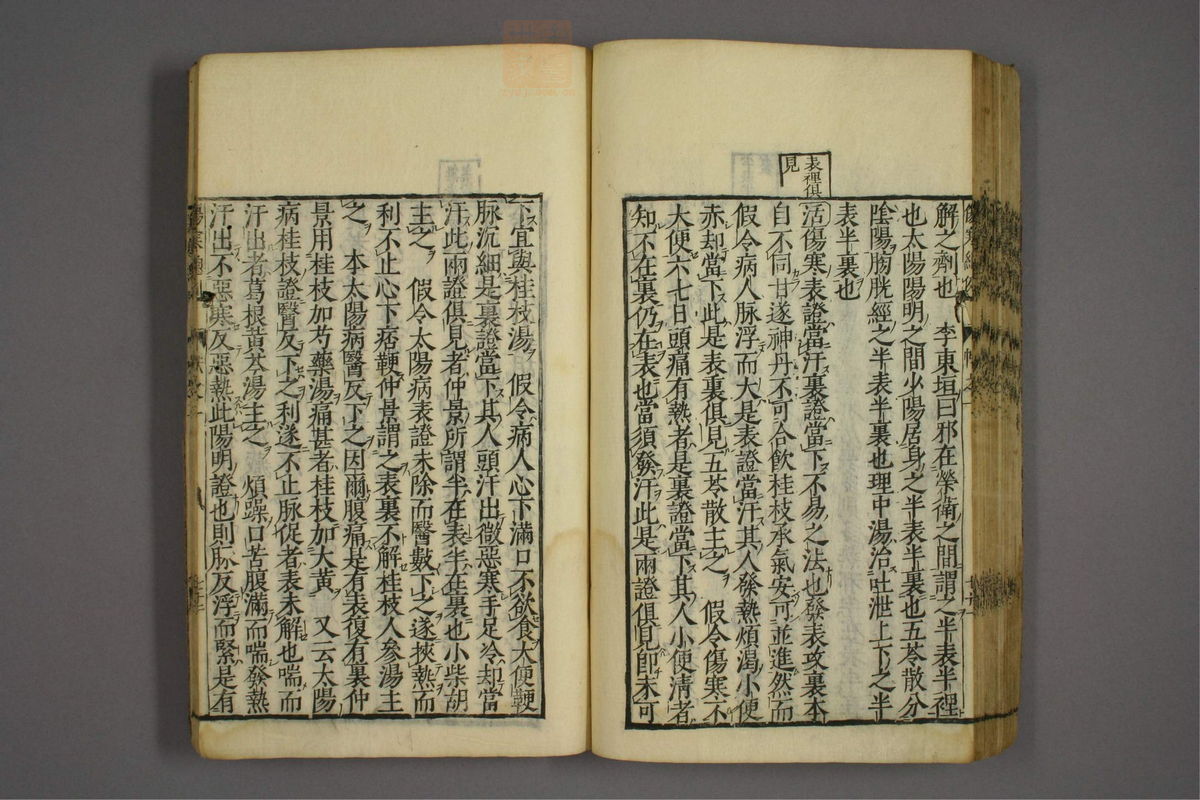 解之劑也　李東垣曰邪在榮衛之間謂之半表半裡
也太陽陽明之間少陽居身之半表半裏也五苓散分
陰陽膀胱經之半表半裏也理中湯治吐泄上下之半
表半裏也
表裡俱
見
活傷寒表證當汗裏證當下不易之法也發表攻裏本
自不同甘遂神丹不可合飲桂枝承氣安可並進然而
假令病人脉浮而大是表證當汗其人發熱煩渴小便
赤却當下此是表裏俱見五苓散主之　假令傷寒不
大便六七日頭痛有熱者是裏證當下其人小便清者
知不在裏仍在表也當須發汗此是兩證俱見即未可
下宜與桂枝湯　假令病人心下滿口不欲食大便鞕
脉沉細是裏證當下其人頭汗出微惡寒手足冷却當
汗此兩證俱見者仲景所謂半在表半在裏也小柴胡
主之　假令太陽病表證未除而醫數下之遂挾熱而
利不止心下痞鞕仲景謂之表裏不解桂枝人參湯主
之　本太陽病醫反下之因爾腹痛是有表復有裏仲
景用桂枝加芍藥湯痛甚者桂枝加大黃　又云太陽
病桂枝證醫反下之利遂不止脉促者表未解也喘而
汗出者葛根黃芩湯主之　煩躁口苦腹滿而喘發熱
汗出不惡寒反惡熱此陽明證也則脉反浮而緊是有